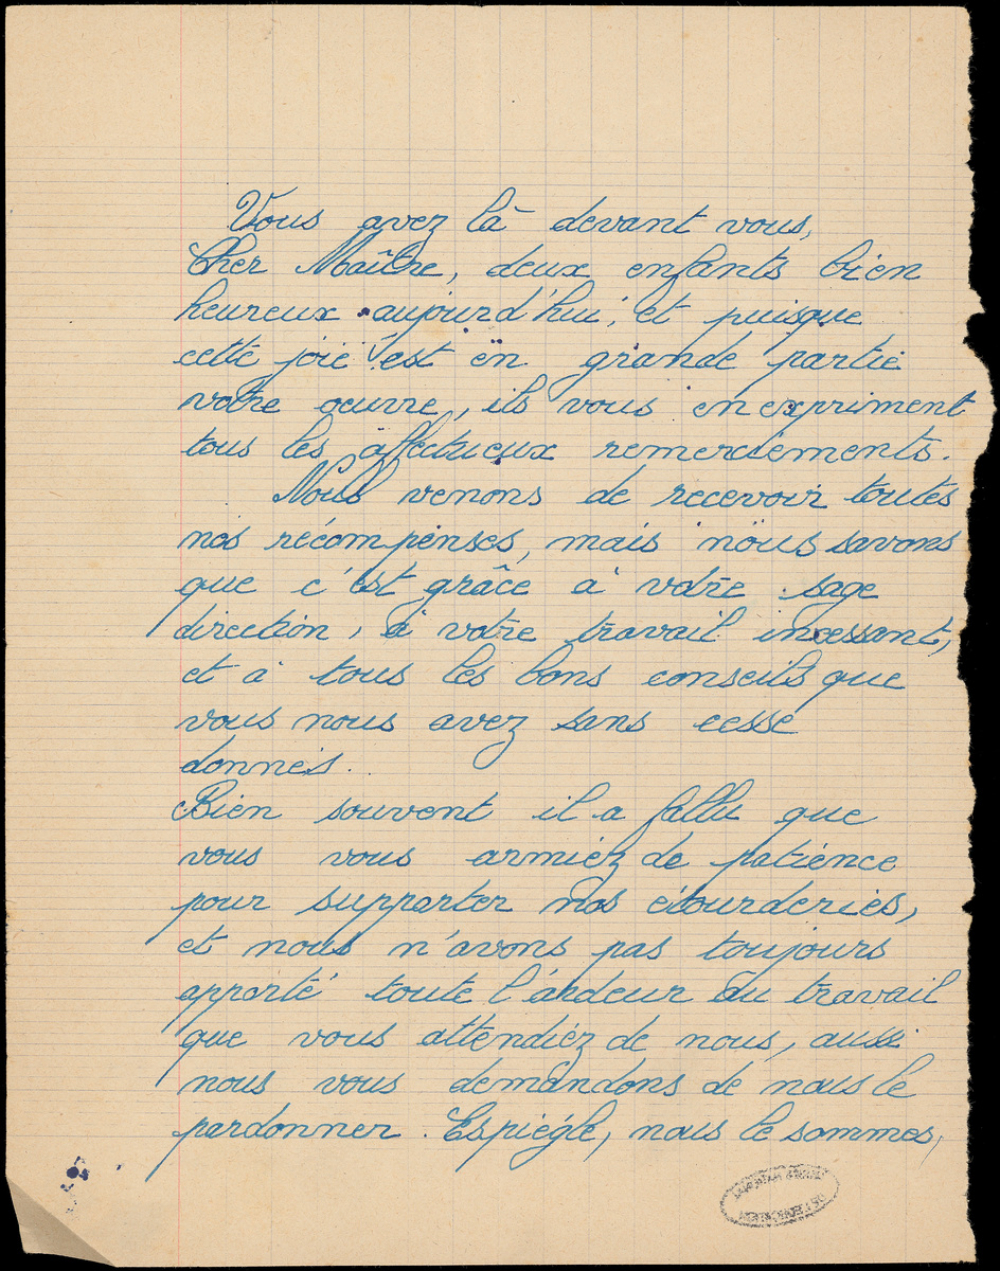 Vous avez là devant vous,
Cher Maître, deux enfants bien
heureux aujourd'hui, et puisque
cette joie est en grande partie
votre oeuvre, ils vous en expriment
tous les affectueux remerciements.
Nous venons de recevoir toutes
nos récompenses, mais nous savons
que c'est grâce à votre sage
direction, à votre travail incessant,
et à tous les bons conseils que
vous nous avez sans cesse
donnés.
Bien souvent il a fallu que
vous vous armiez de patience
pour supporter nos étourderies,
et nous n'avons pas toujours
apporté toute l'ardeur au travail
que vous attendiez de nous, aussi
nous vous demandons de nous le
pardonner. Espiégle, nous le sommes,